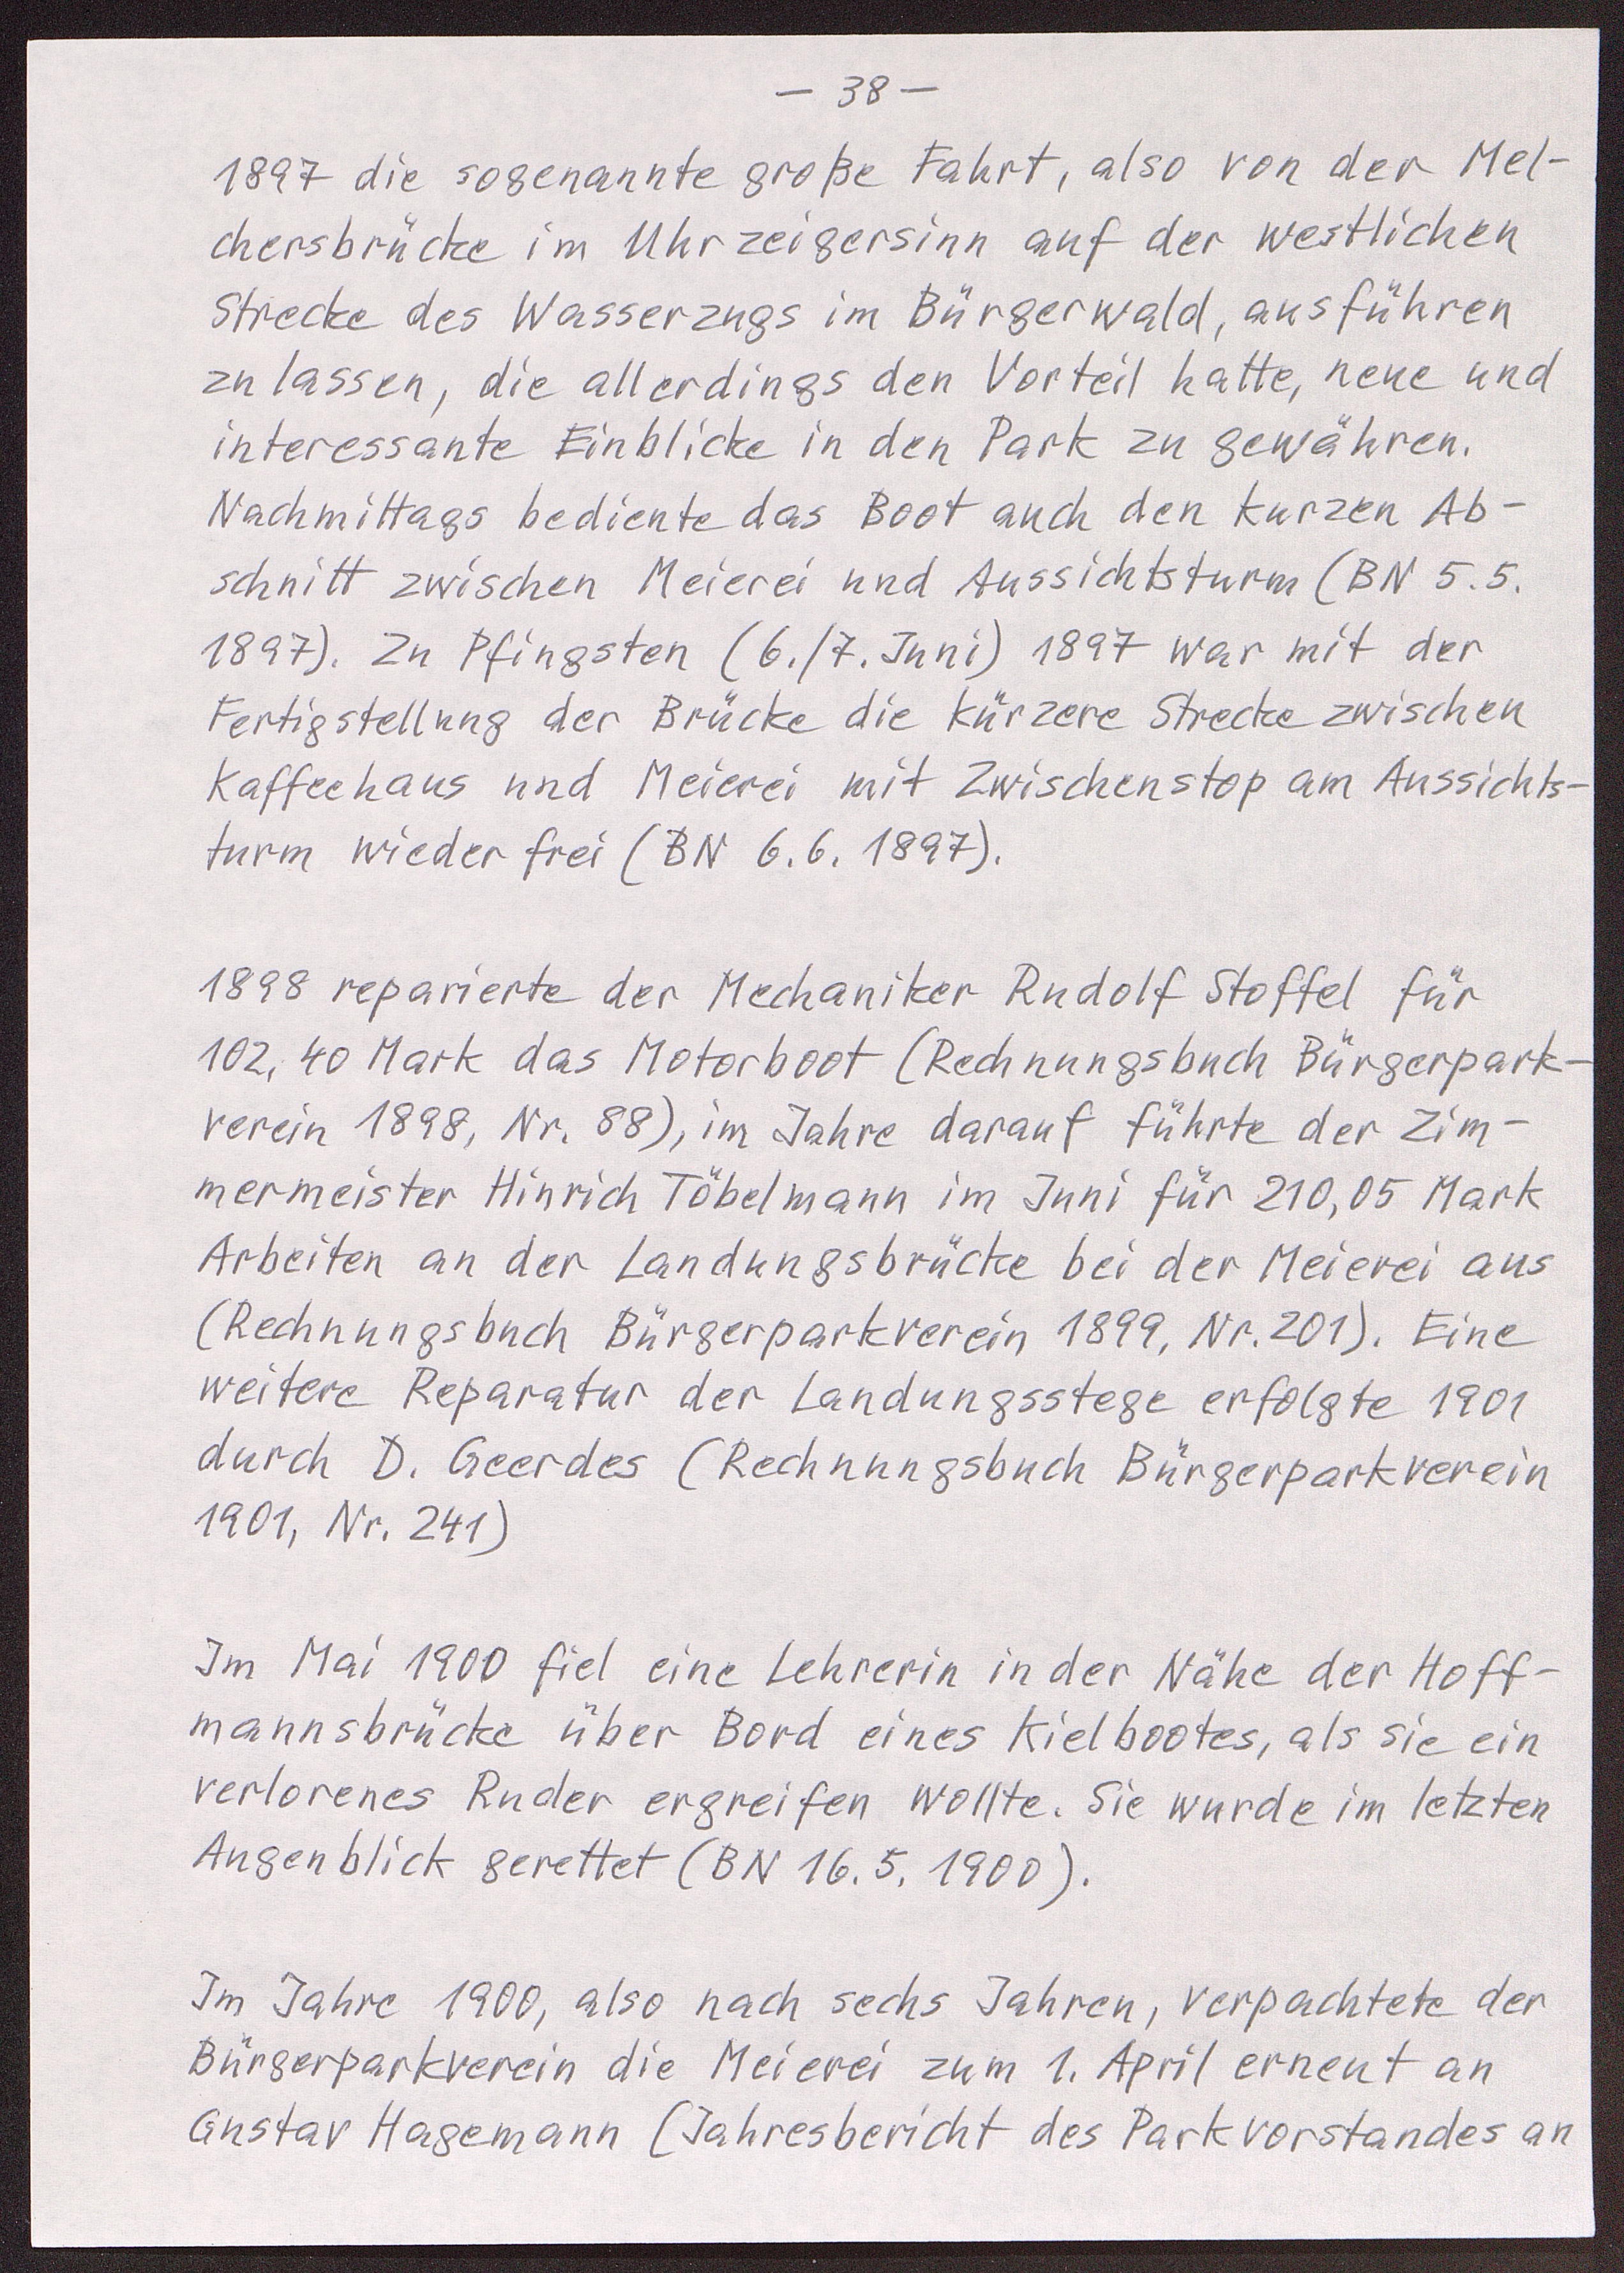 — 38 —
1897 die sogenannte große Fahrt, also von der Mel-
chersbrücke im Uhrzeigersinn auf der westlichen
Strecke des Wasserzugs im Bürgerwald, ausführen
zu lassen, die allerdings den Vorteil hatte, neue und
interessante Einblicke in den Park zu gewähren.
Nachmittags bediente das Boot auch den kurzen Ab-
schnitt zwischen Meierei und Aussichtsturm (BN 5.5.
1897). Zu Pfingsten (6./7. Juni) 1897 war mit der
Fertigstellung der Brücke die kürzere Strecke zwischen
Kaffeehaus und Meierei mit Zwischenstop am Aussichts-
turm wieder frei (BN 6.6. 1897).
1898 reparierte der Mechaniker Rudolf Stoffel für
102,40 Mark das Motorboot (Rechnungsbuch Bürgerpark-
verein 1898, Nr. 88), im Jahre darauf führte der Zim-
mermeister Hinrich Töbelmann im Juni für 210,05 Mark
Arbeiten an der Landungsbrücke bei der Meierei aus
(Rechnungsbuch Bürgerparkverein 1899, Nr. 201). Eine
weitere Reparatur der Landungsstege erfolgte 1901
durch D. Geerdes (Rechnungsbuch Bürgerparkverein
1901, Nr. 241)
Im Mai 1900 fiel eine Lehrerin in der Nähe der Hoff-
mannsbrücke über Bord eines Kielbootes, als sie ein
verlorenes Ruder ergreifen wollte. Sie wurde im letzten
Augenblick gerettet (BN 16.5. 1900).
Im Jahre 1900, also nach sechs Jahren, verpachtete der
Bürgerparkverein die Meierei zum 1. April erneut an
Gustav Hagemann (Jahresbericht des Parkvorstandes an